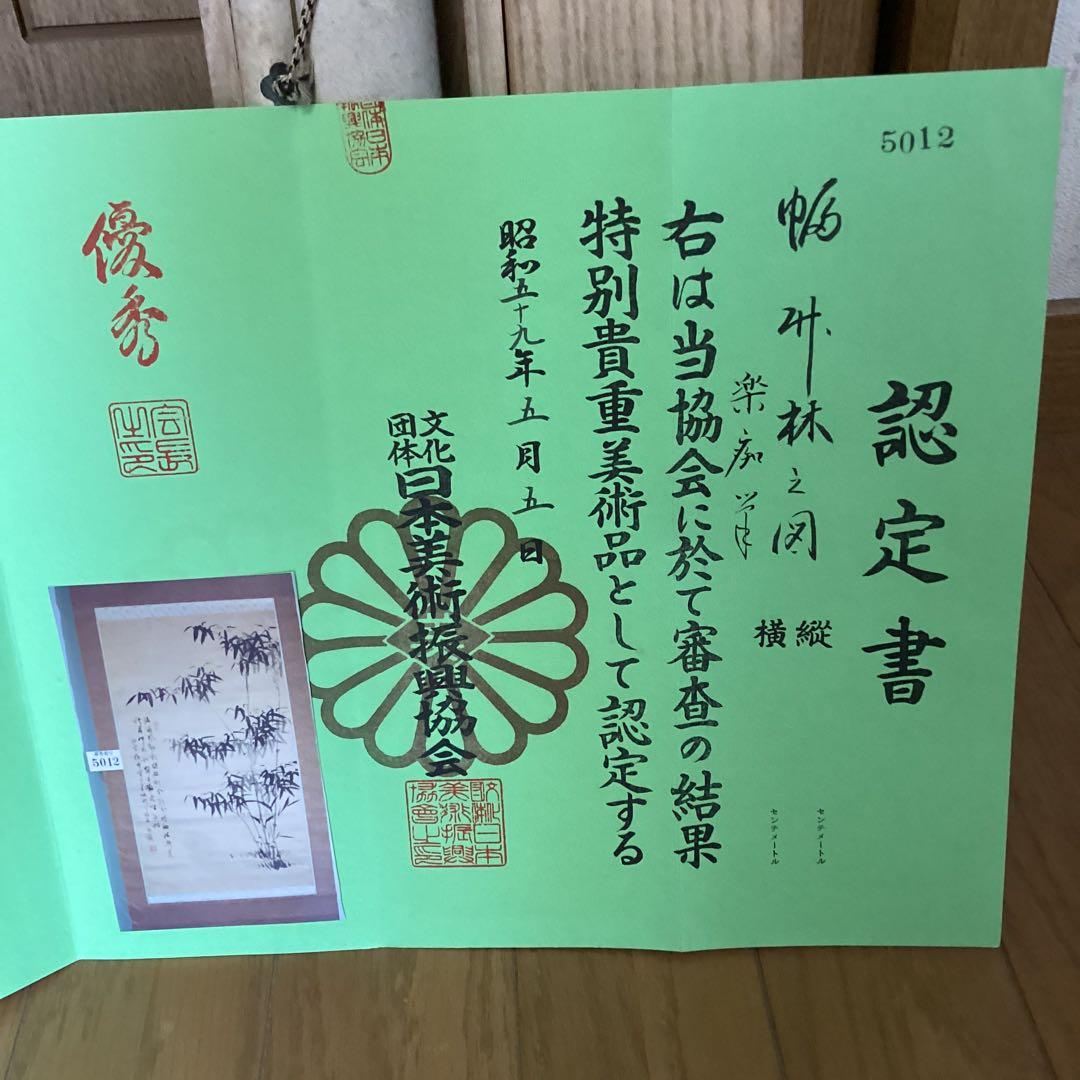 5012
認定書
幅 竹林之図
楽痴筆
縦 センチメートル
横 センチメートル
右は当協会に於て審査の結果
特別貴重美術品として認定する
昭和五十九年五月五日
文化団体 日本美術振興協会
優秀
会長之印
5012